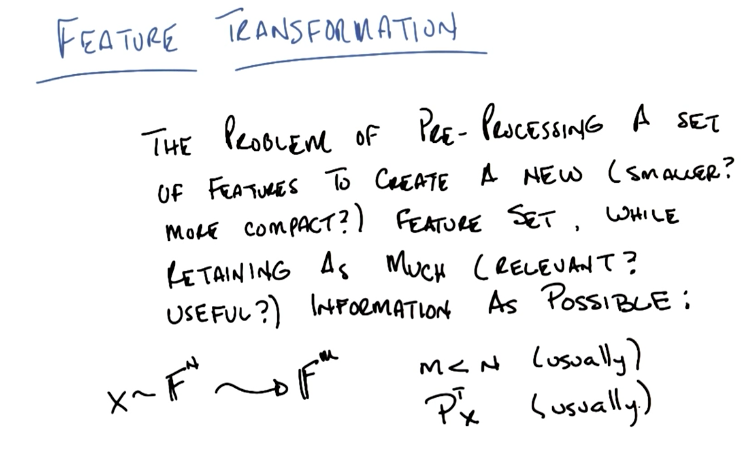 FEATURE TRANSFORMATION
THE PROBLEM OF PRE-PROCESSING A SET
OF FEATURES TO CREATE A NEW (SMALLER?
MORE COMPACT?) FEATURE SET, WHILE
RETAINING AS MUCH (RELEVANT?
USEFUL?) INFORMATION AS POSSIBLE:
X ~ F^N → F^M   M < N (usually)
P^T x (usually)